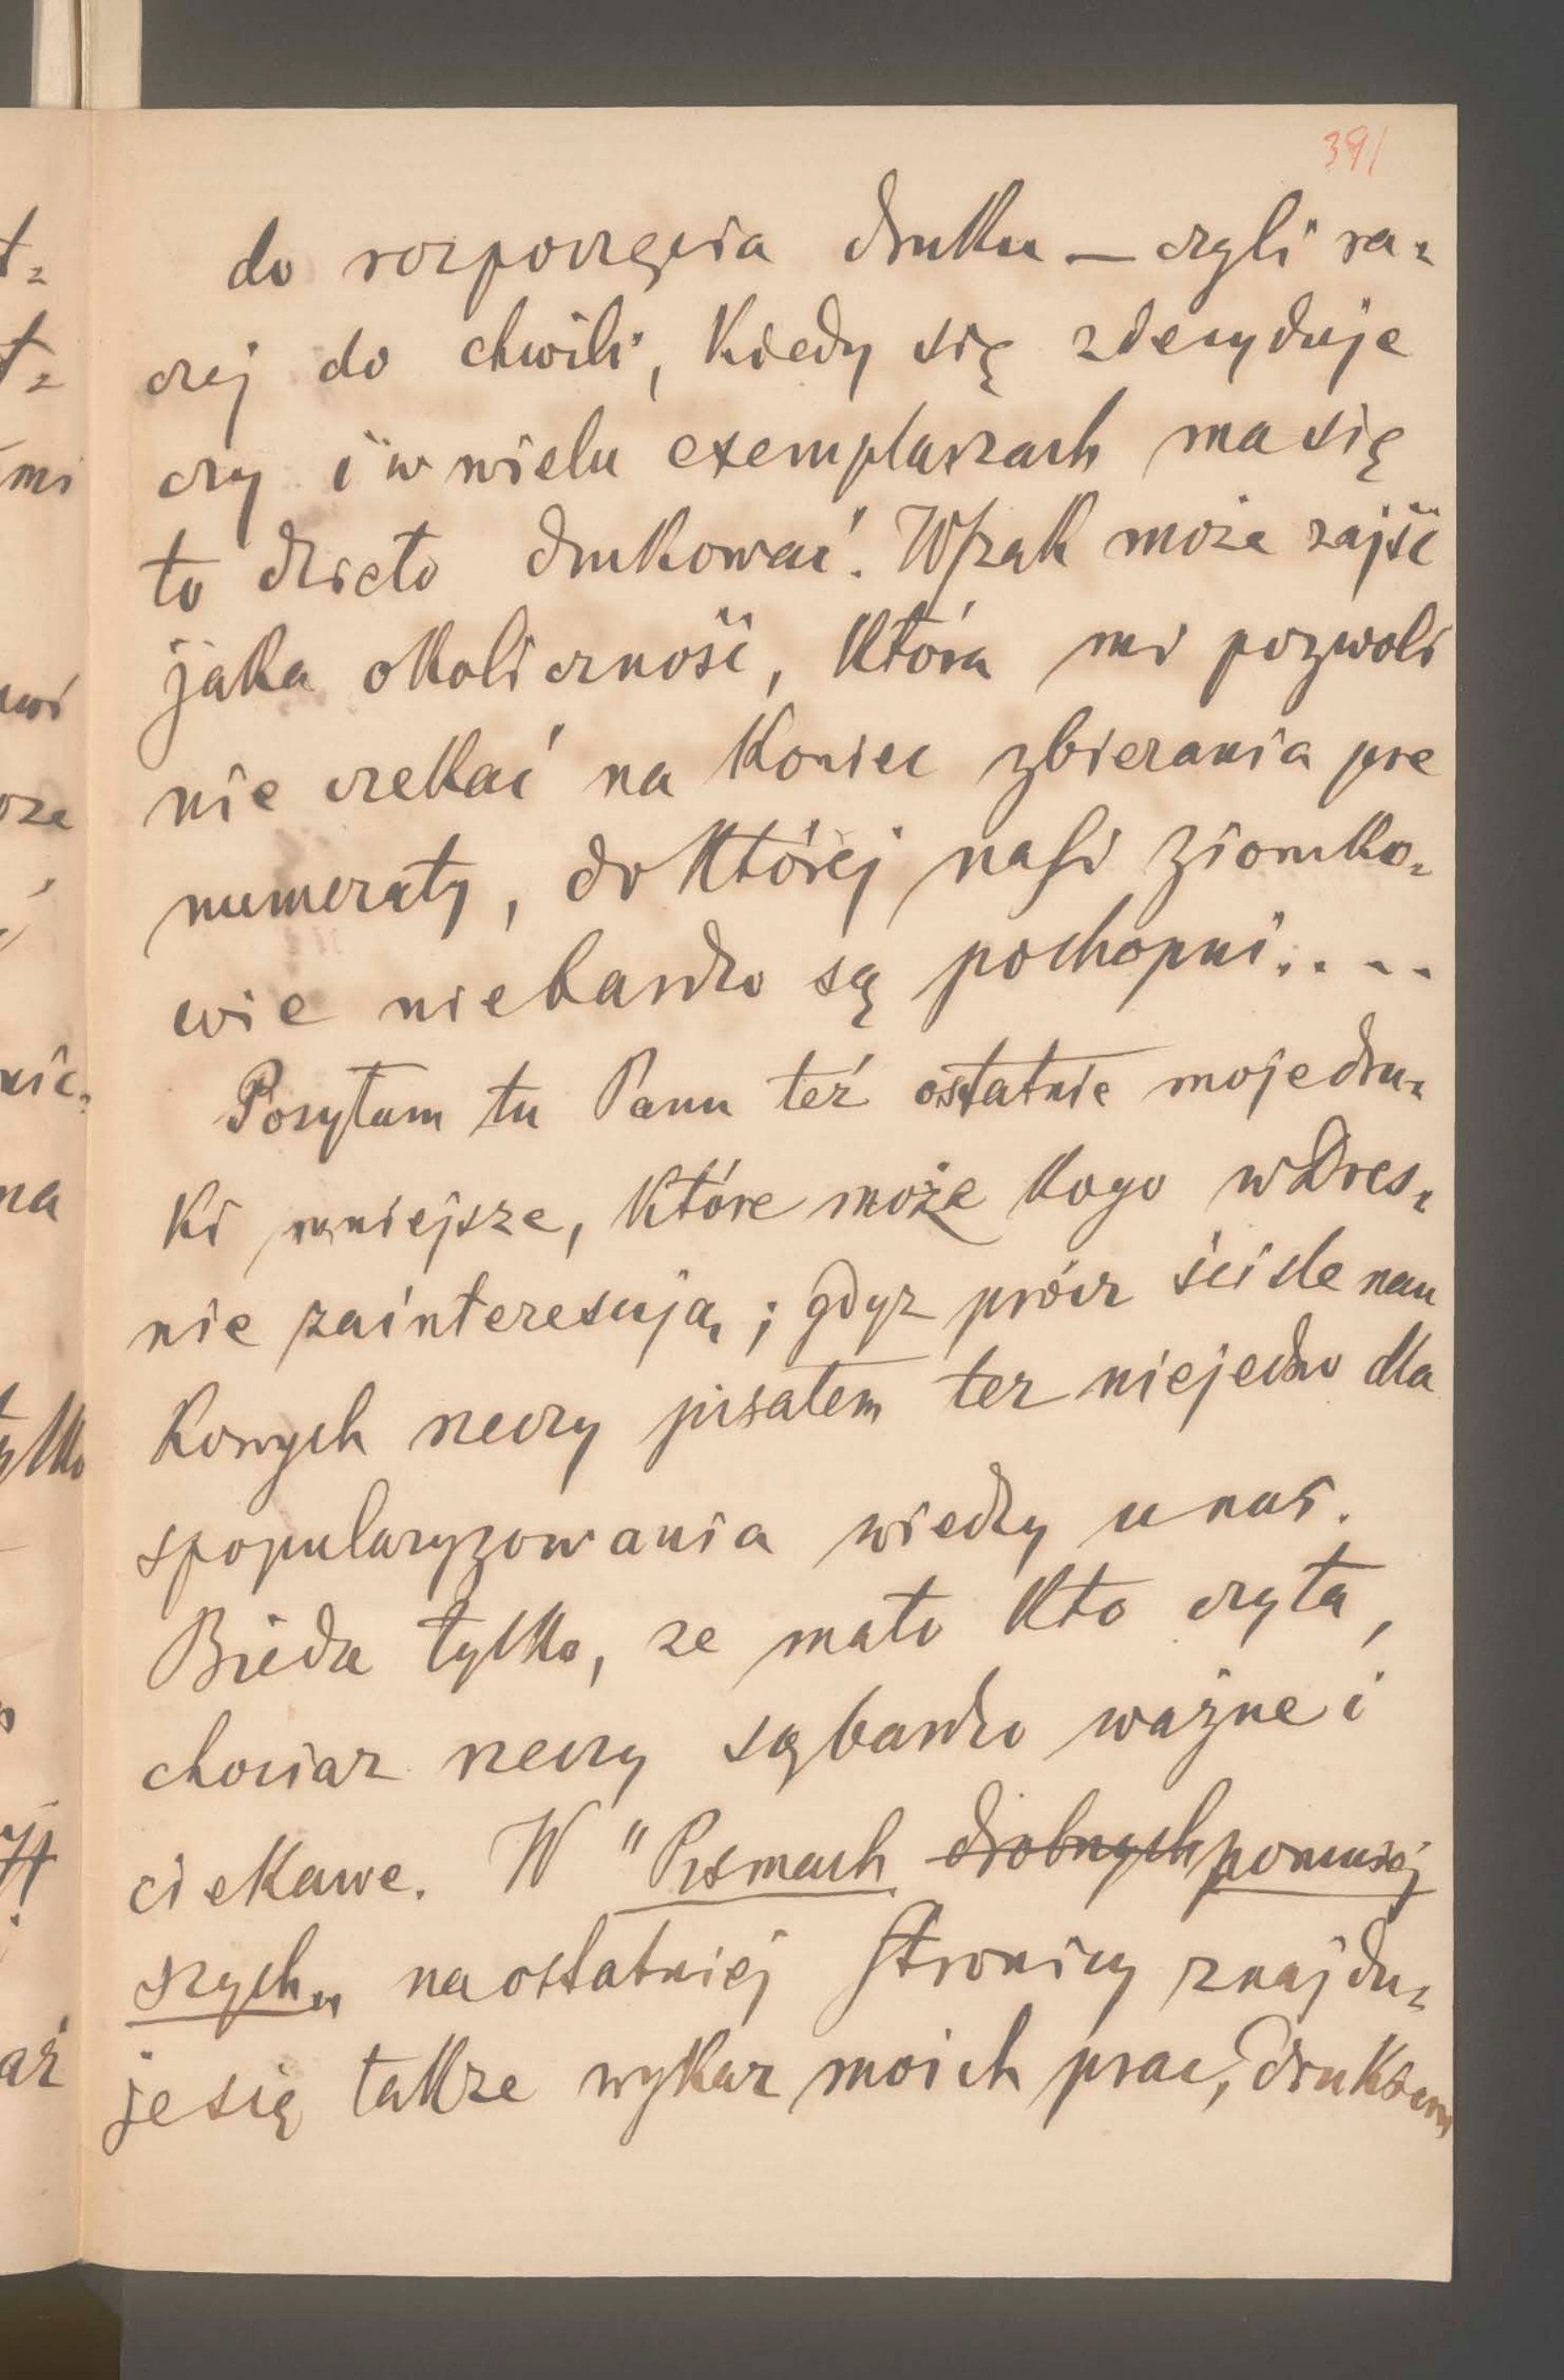 391
do rozpoczęcia druku — czyli ra=
czej do chwili, kiedy się zdecyduje
czy i w wielu exemplarzach ma się
to dzieło drukować. Wszak może zajść
jaka okoliczność, która mi pozwoli
nie czekać na koniec zbierania pre
numeraty, do której nasi ziomko=
wie niebardzo są pochopni....
Posyłam tu Panu też ostatnie moje dru=
ki mniejsze, które może kogo w Dreź=
nie zainteresują; gdyz prócz ściśle nau
kowych rzeczy pisałem tez niejedno dla
spopularyzowania wiedzy u nas.
Bieda tylko, ze mało kto czyta,
chociaz rzeczy są bardzo ważne i
ciekawe. W "Pismach drobnych pomniej
szych" na ostatniej stronicy znajdu=
je się takze wykaz moich prac, drukiem